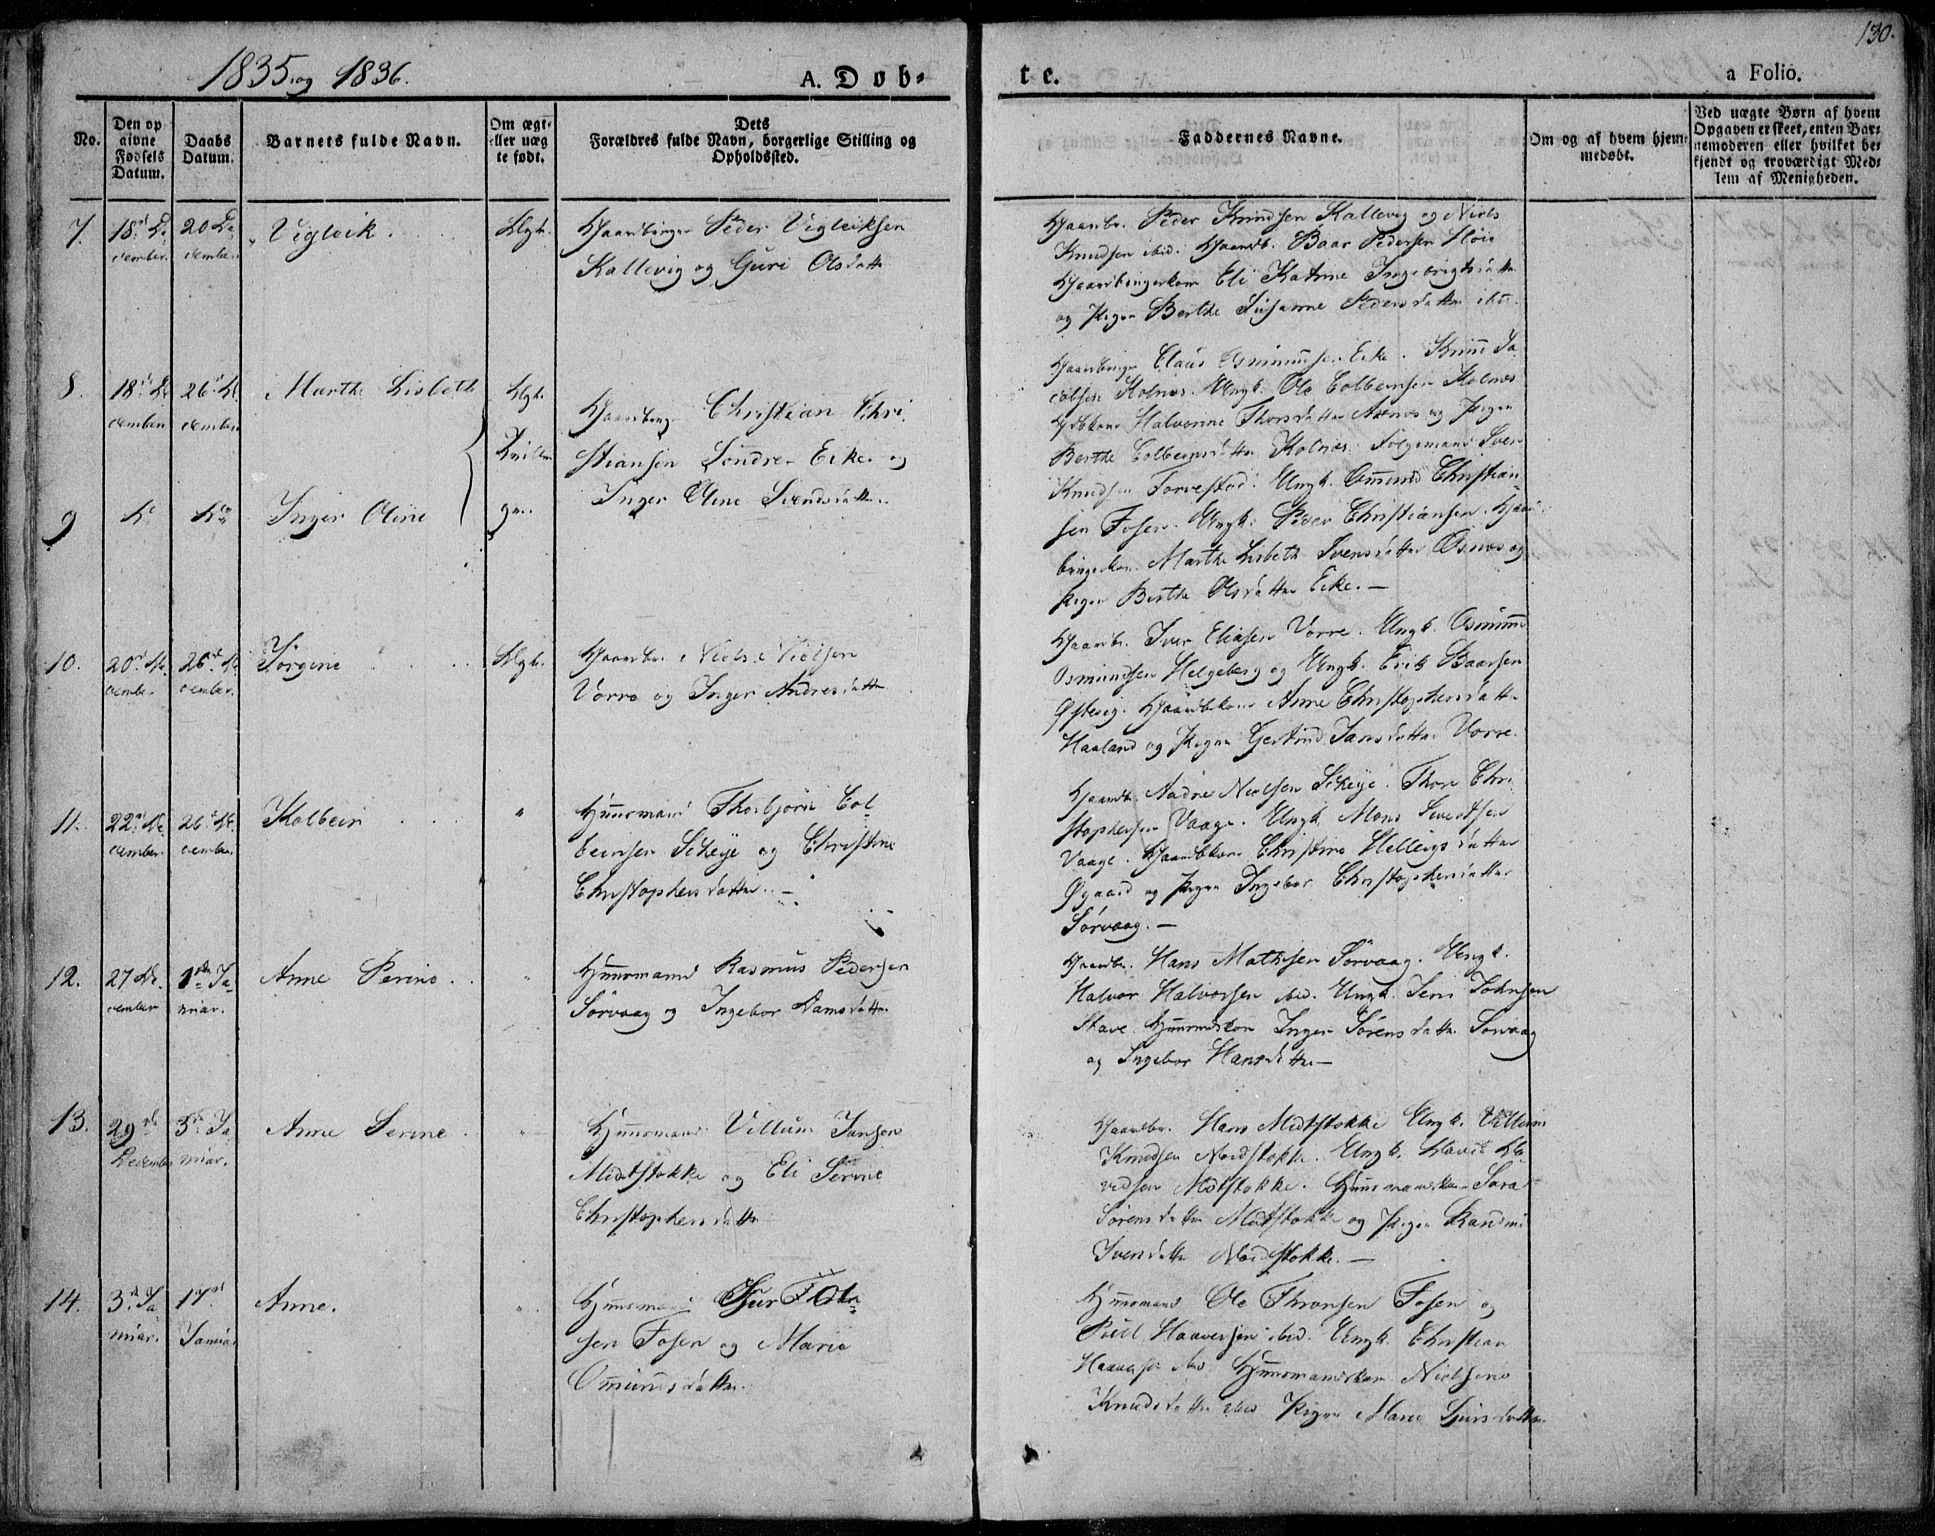 1835 og 1836.
A. Døb-
te.
130.
a Folio.
No.
Den op
givne
Fødsels
Datum.
Daabs
Datum.
Barnets fulde Navn.
Om ægt-
eller uæg
te født.
Dets
Forældres fulde Navn, borgerlige Stilling og
Opholdssted.
Faddernes Navne.
Om og af hvem hjem-
medøbt.
Ved uægte Børn af hvem
Opgaven er skeet, enten Bar-
nemoderen eller hvilket be-
kjendt og troværdigt Med-
lem af Menigheden.
7.
18de De
cember.
20 De
cember.
Vigleik.
Ægte.
Gaardbruger Peder Vigleiksen
Kallevig og Guri Olsdatter
Gaardbr. Peder Knudsen Kallevig og Niels
Knudsen ibid. Gaardb. Baar Pedersen Høie
Gaardbrugerkone Eli Katrine Ingebrigtsdatter
og Pigen Berthe Susanne Pedersdatter ibid.
8.
18de De
cember
26de De
cember
Marthe Lisbeth
Ægte.
Tvillin
ger.
Gaardbruger Christian Chri
stiansen Søndre Eike og
Inger Oline Svendsdatter.
9
Do
Do
Inger Oline
Gaardbruger Claus Osmundsen Eike. Knud Ja
cobsen Kolnæs. Ungk. Ole Colbensen Kolnæs
Gdbkone Halvorine Thorsdatter Axnes og Pigen
Berthe Colbensdatter Kolnæs. Følgemand Sven
Knudsen Torvestad. Ungk. Omund Christian
sen Fosen. Ungk: Peder Christiansen. Gaard
brugerkon. Marthe Lisbeth Svensdatter Osnes og
Pigen Berthe Olsdatter Eike.—
10.
20de De
cember
26de De
cember.
Jørgine
Ægte.
Gaardbr. Niels Nielsen
Vorre og Inger Andreasdatter
Gaardbr. Iver Eliasen Vorre. Ungk. Osmund
Osmundsen Helgeberg og Ungk. Erik Baarsen
Østevig. Gaardbkone Anne Christophersdatter
Haaland og Pigen Gertrud Jansdatter Vorre.
11.
22de De
cember.
26de De
cember.
Kolbein
"
Huusmand Thorbjørn Col
beinsen Sikeye og Christine
Christophersdatter.—
Gaardb. Andre Nielsen Sikeye. Thore Chri
stophersen Vaage. Ungk. Mons Sivertsen
Vaage. Gaardbkone Christine Hellevigsdatter
Øgaard og Pigen Ingebor Christophersdatter
Sørvaag.—
12.
27 De.
cember
1ste Ja
nuar.
Anne Perine
"
Huusmand Rasmus Pedersen
Sørvaag og Ingebor Hansdatter
Gaardbr. Hans Mathisen Sørvaag. Ungk.
Halvor Halvorsen ibid. Ungk. Jens Johnsen
Stave. Huusmdskone Inger Sørensdatter Sørvaag
og Ingebor Hansdatter—
13.
29de
December
3de Ja
nuar.
Anne Serine
"
Huusmand Villum Jansen
Midtstokke og Eli Serine
Christophersdatter
Gaardbr. Hans Midtstokke Ungk. Villum
Knudsen Nordstokke. Ungk. David Da
vidsen Midtstokke. Huusmandskone Sara
Sørensdatter Midtstokke og Pigen Randine
Svensdatter Nordstokke.—
14.
3de Ja
nuar.
17de
Januar
Anne.
"
Huusmand Sjur Ole
sen Fosen og Marie
Omundsdatter.
Huusmand Ole Thronsen Fosen og
Poul Haaversen ibid. Ungk. Christian
Haaversen ibid. Huusmandskone Nielsene
Knudsdatter ibid Pigen Marie Sjursdatter